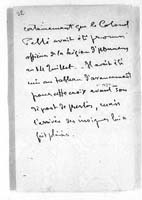 certainement que le Colonel
Pellé avait été promu
officier de la Légion d'honneur
au 14 Juillet. Il avait été
mis au tableau d'avancement
pour officier avant son
départ de Berlin, mais
l'arrivée des insignes lui a
fait plaisir.